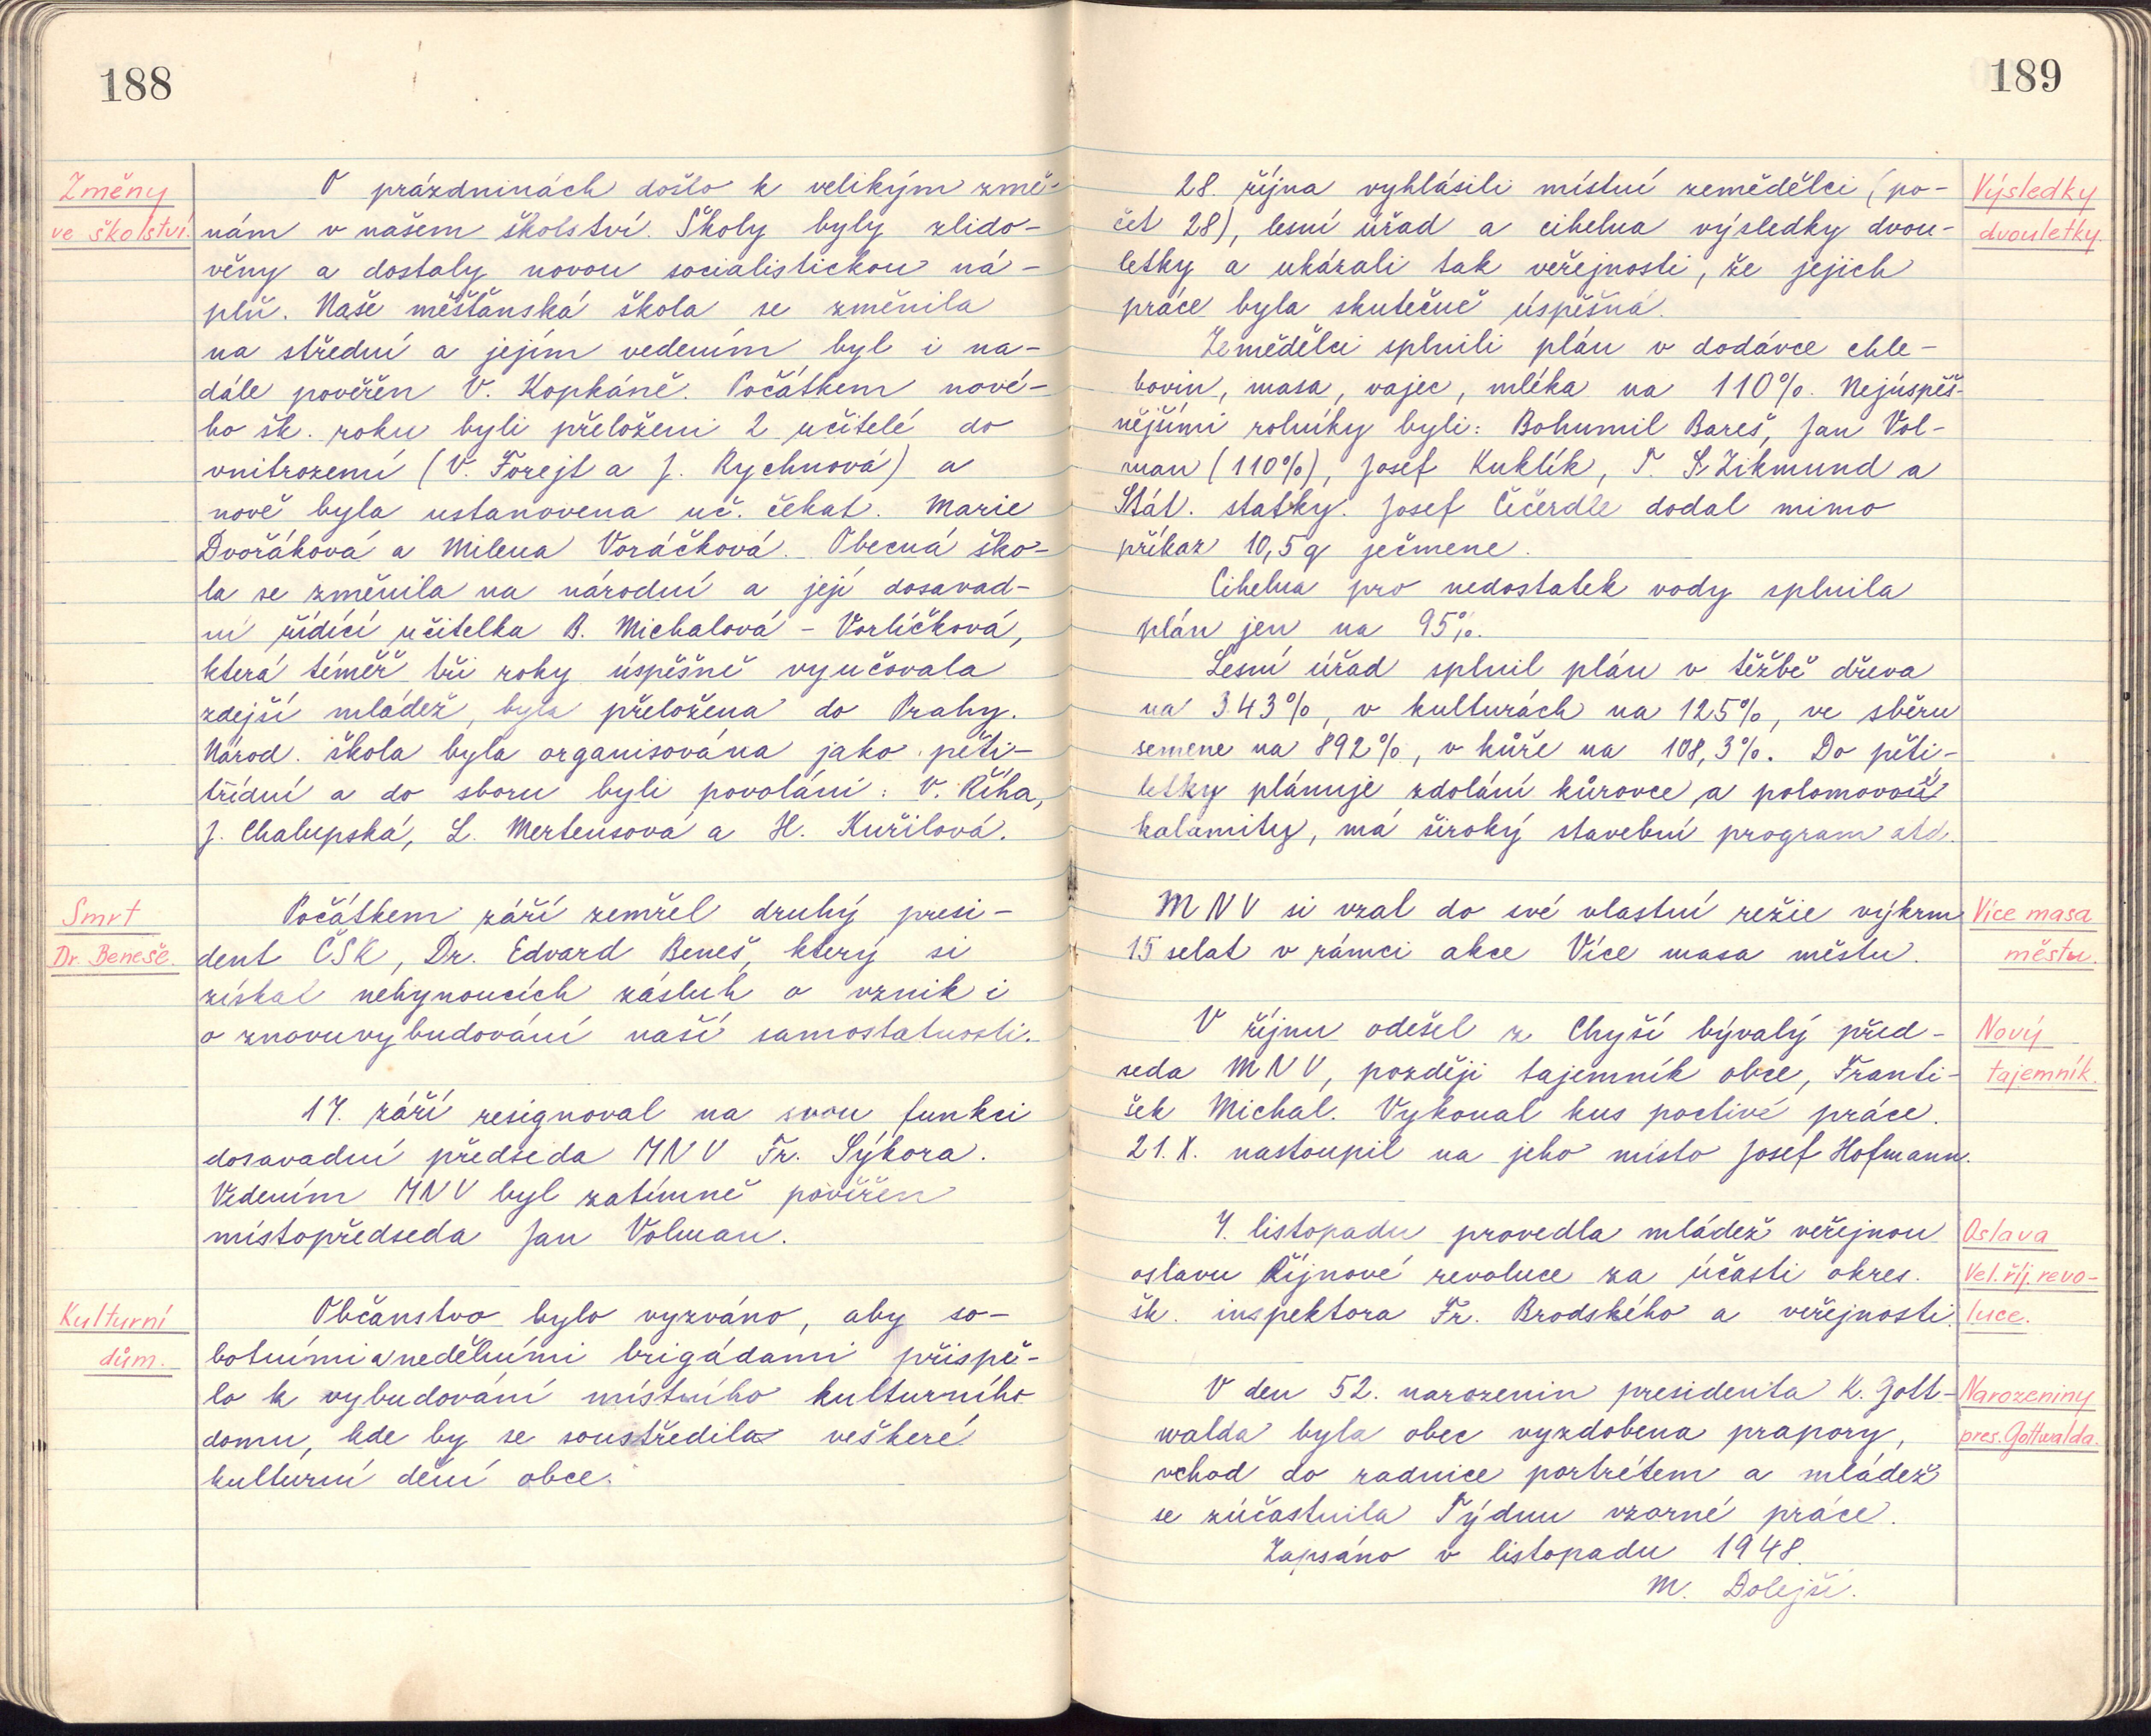 188
Změny
ve školství.
O prázdninách došlo k velikým změ-
nám v našem školství. Školy byly zlido-
věny a dostaly novou socialistickou ná-
plň. Naše měšťanská škola se změnila
na střední a jejím vedením byl i na-
dále pověřen V. Kopkáně. Počátkem nové-
ho šk. roku byli přeloženi 2 učitelé do
vnitrozemí (V. Forejt a J. Rychnová) a
nově byla ustanovena uč. čekat. Marie
Dvořáková a Milena Voráčková. Obecná ško-
la se změnila na národní a její dosavad-
ní řídící učitelka B. Michalová - Vorlíčková,
která téměř tři roky úspěšně vyučovala
zdejší mládež, byla přeložena do Prahy.
Národ. škola byla organisována jako pěti-
třídní a do sboru byli povoláni: V. Říha,
J. Chalupská, L. Mertensová a H. Kuřilová.
Smrt
Dr. Beneše.
Počátkem září zemřel druhý presi-
dent ČSR, Dr. Edvard Beneš, který si
získal nehynoucích zásluh o vznik i
o znovuvybudování naší samostatnosti.
17. září resignoval na svou funkci
dosavadní předseda MNV Fr. Sýkora.
Vedením MNV byl zatímně pověřen
místopředseda Jan Volman.
Kulturní
dům.
Občanstvo bylo vyzváno, aby so-
botními a nedělními brigádami přispě-
lo k vybudování místního kulturního
domu, kde by se soustředila veškeré
kulturní dění obce.
189
28. října vyhlásili místní zemědělci (po-
čet 28), lesní úřad a cihelna výsledky dvou-
letky a ukázali tak veřejnosti, že jejich
práce byla skutečně úspěšná.
Výsledky
dvouletky.
Zemědělci splnili plán v dodávce chle-
bovin, masa, vajec, mléka na 110%. Nejúspěš-
nějšími rolníky byli: Bohumil Bareš, Jan Vol-
man (110%), Josef Kuklík, T. S. Zikmund a
Stát. statky. Josef Čečerdle dodal mimo
příkaz 10,5 q ječmene.
Cihelna pro nedostatek vody splnila
plán jen na 95%.
Lesní úřad splnil plán v těžbě dřeva
na 343%, v kulturách na 125%, ve sběru
semene na 892%, v kůře na 108,3%. Do pěti-
letky plánuje zdolání kůrovce a polomové
kalamity, má široký stavební program atd.
MNV si vzal do své vlastní režie výkrm
15 selat v rámci akce Více masa městu.
Více masa
městu.
V říjnu odešel z Chyší bývalý před-
seda MNV, později tajemník obce, Franti-
šek Michal. Vykonal kus poctivé práce.
21. X. nastoupil na jeho místo Josef Hofmann.
Nový
tajemník.
7. listopadu provedla mládež veřejnou
oslavu Říjnové revoluce za účasti okres.
šk. inspektora Fr. Brodského a veřejnosti.
Oslava
Vel. říj. revo-
luce.
V den 52. narozenin presidenta K. Gott-
walda byla obec vyzdobena prapory,
vchod do radnice portrétem a mládež
se zúčastnila Týdnu vzorné práce.
Narozeniny
pres. Gottwalda.
Zapsáno v listopadu 1948.
M. Dolejší.